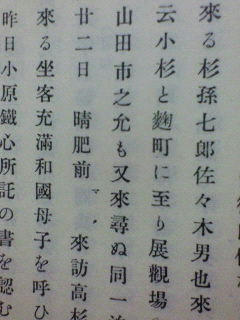 來る杉孫七郎佐々木男也來
云小杉と麴町に至り展觀場
山田市之允も又來尋ぬ同一
廿二日 晴肥前 マヽ 來訪高杉
來る坐客充滿和國母子を呼ひ
昨日小原鐵心所託の書を認む